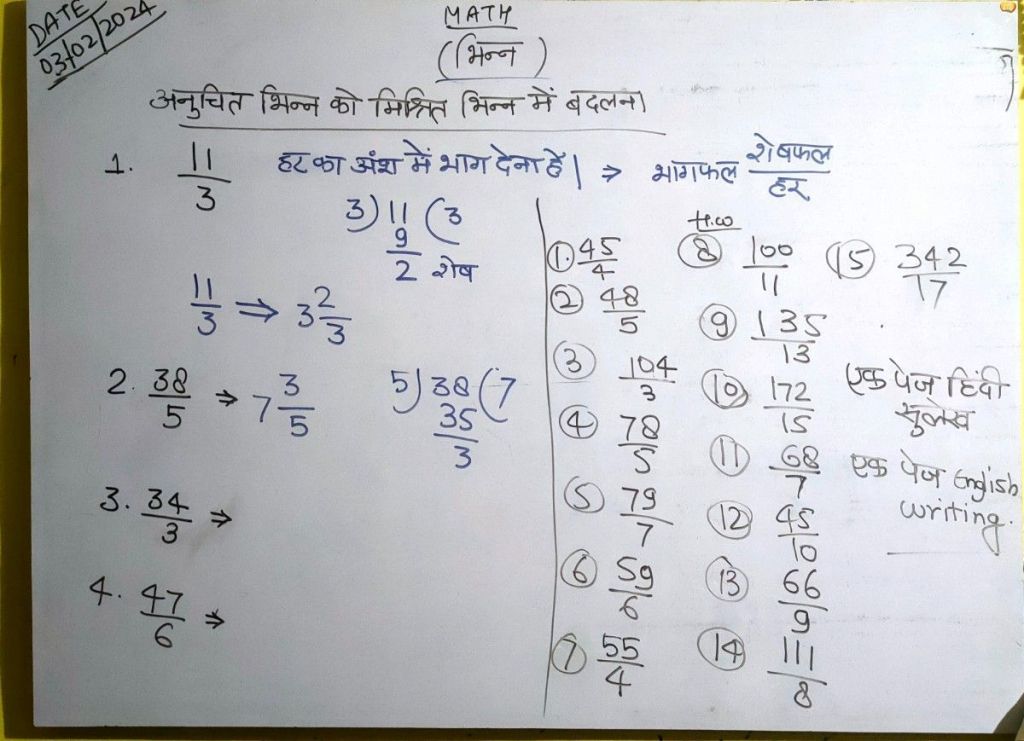 DATE
03/02/2024
MATH
(भिन्न)
अनुचित भिन्न को मिश्रित भिन्न में बदलना।
1. 11/3 हर का अंश में भाग देना है। ⇒ भागफल शेषफल/हर
3) 11 (3
9
2 शेष
11/3 ⇒ 3 2/3
2. 38/5 ⇒ 7 3/5
5) 38 (7
35
3
3. 34/3 ⇒
4. 47/6 ⇒
H.W
① 45/4
② 48/5
③ 104/3
④ 78/5
⑤ 79/7
⑥ 59/6
⑦ 55/4
⑧ 100/11
⑨ 135/13
⑩ 172/15
⑪ 68/7
⑫ 45/10
⑬ 66/9
⑭ 111/8
⑮ 342/17
एक पेज हिंदी
सुलेख
एक पेज English
writing.